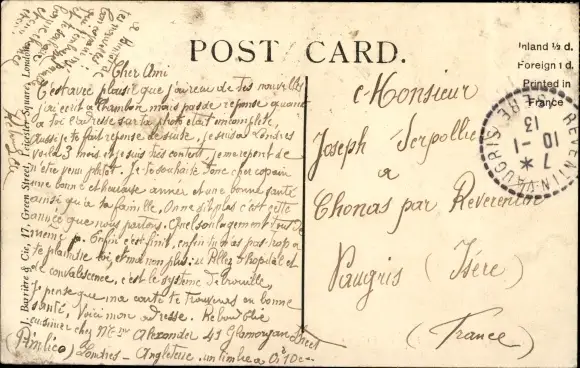 POST CARD.
Inland ½ d.
Foreign 1 d.
Printed in
France
Barrière & Cie, 17, Green Street, Leicester-Square, London
Cher Ami
C'est avec plaisir que j'ai reçu de tes nouvelles
j'ai ecrit a Chambon mais pas de reponse quant
a toi l'adresse sur ta photo etait incomplète
aussi je te fait reponse de suite, je suis a Londres
voila 3 mois et je suis très content, je me repent de
n'être venu plutot. Je te souhaite donc cher copain
une bonne et heureuse année et une bonne santé
ainsi qu'a ta famille. On ne dit plus c'est cette
année que nous partons. Quel soulagement tout de
même. Enfin c'est finit, enfin tu n'as pas trop a
te plaindre toi, et moi non plus. Allez l'hopital et
convalescence, c'est le système debrouille,
je pense que ma carte te trouveras en bonne
santé, Voici mon adresse.
cuisinier chez Alexander 41 Glamorgan Street
(Pimlico) Londres - Angleterre. un timbre a 0f 10c
Monsieur
Joseph Serpollier
a
Chonas par Reventin
Vaugris (Isère)
(France)
REVENTIN-VAUGRIS
ISERE
7 *
10 -1
13